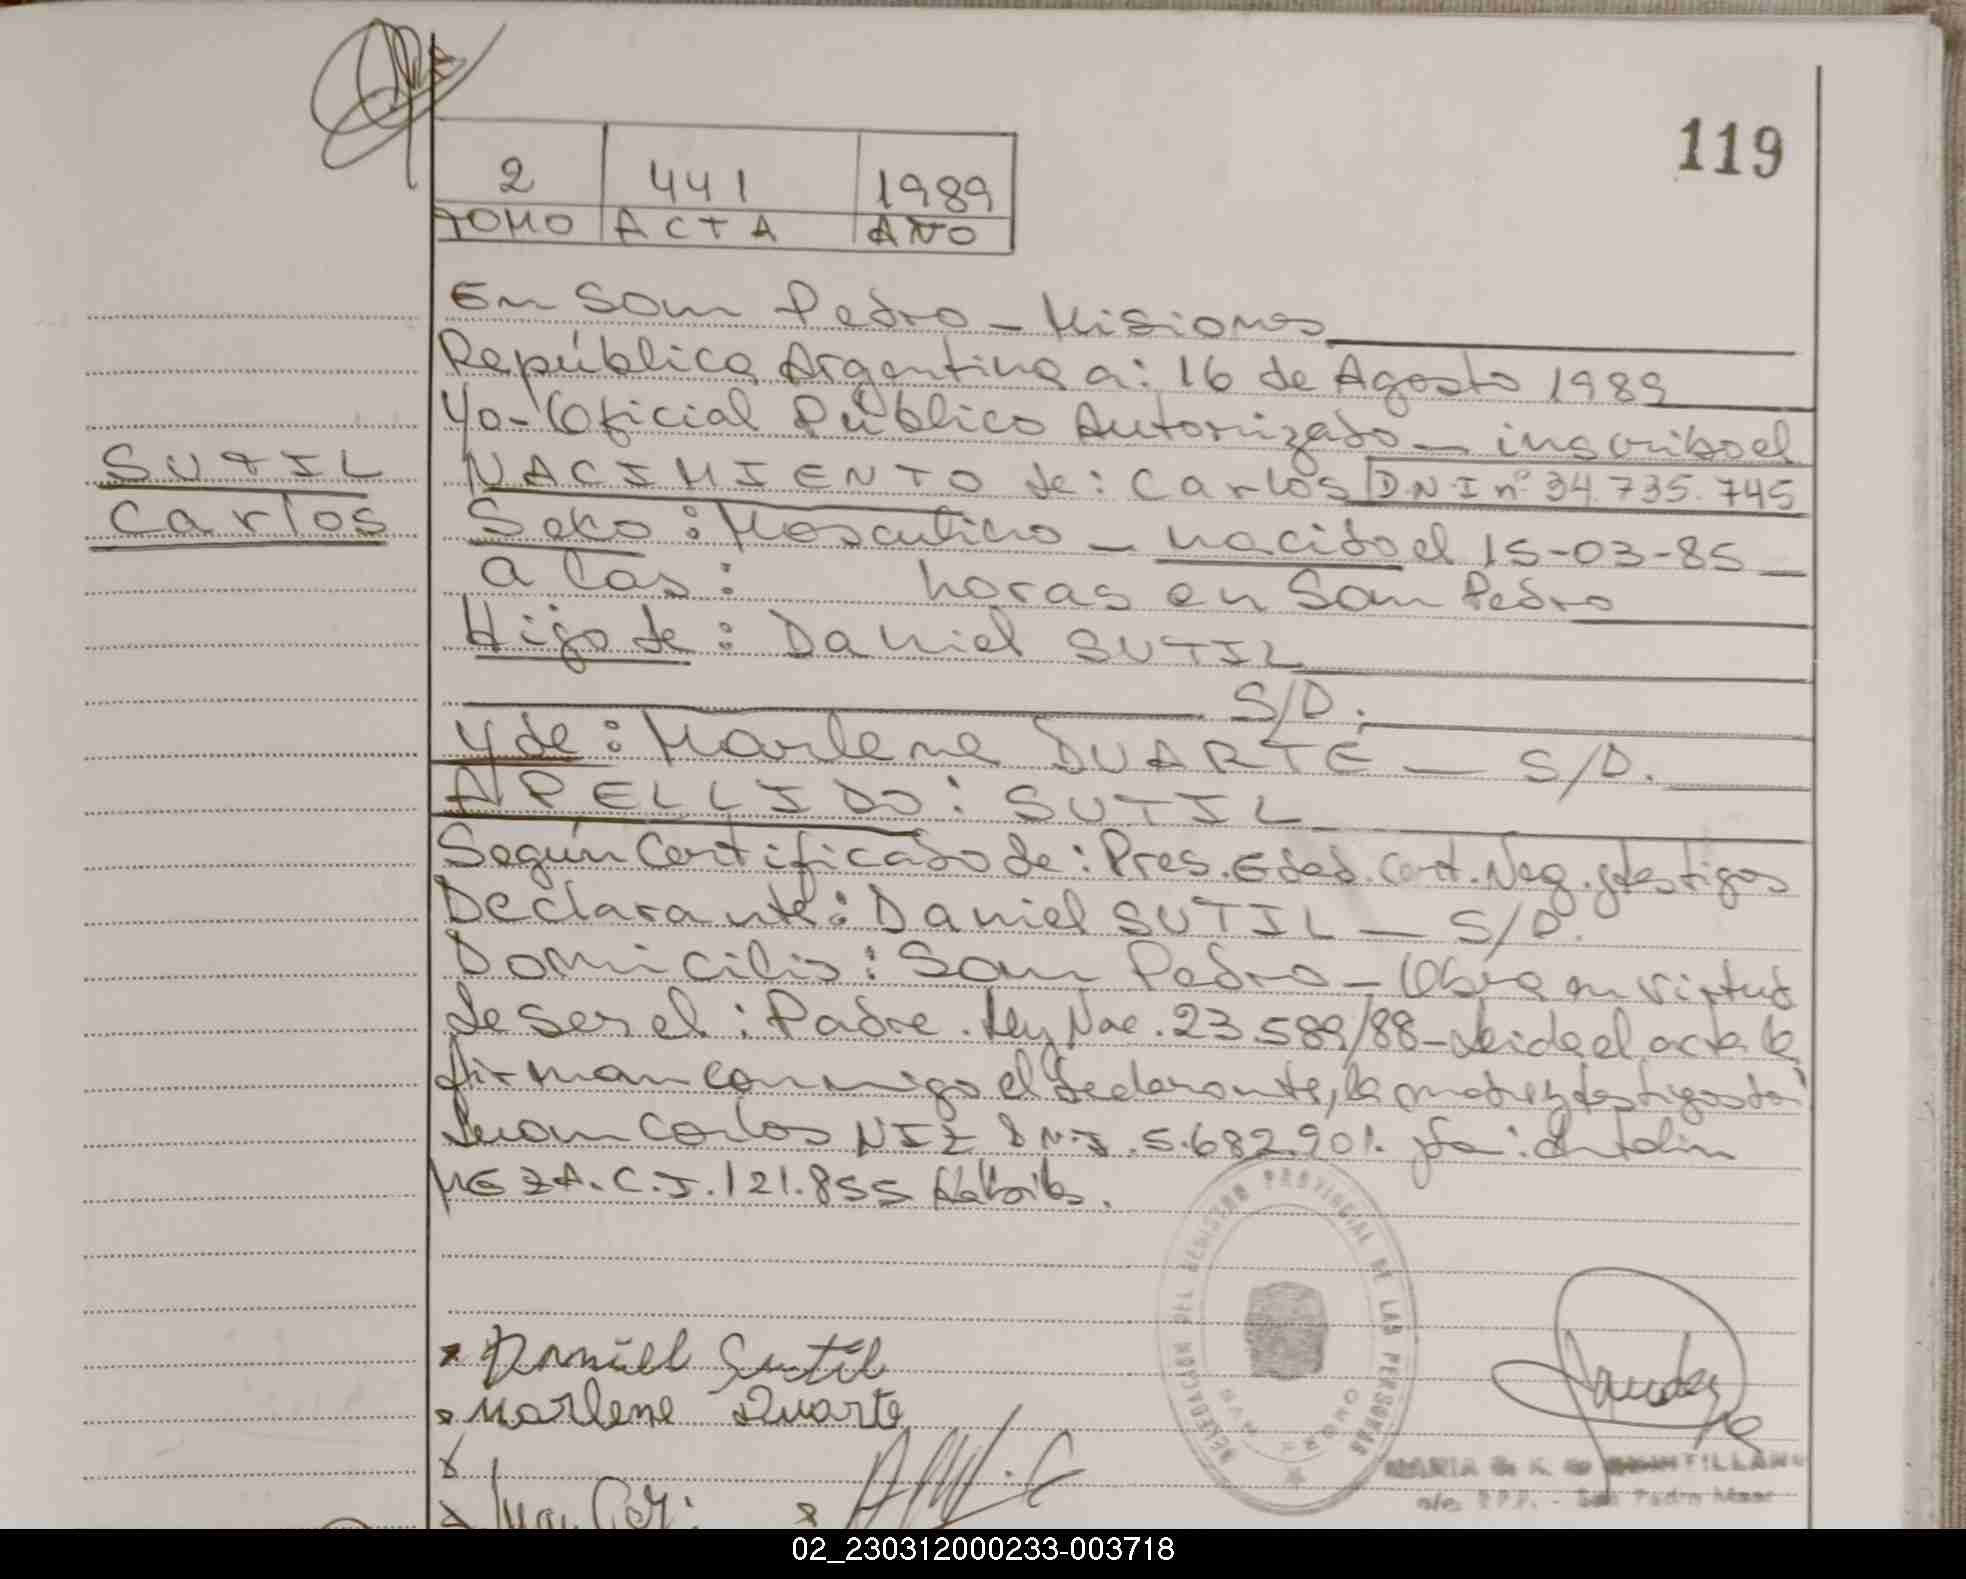 119
2 441 1989
TOMO ACTA AÑO
En San Pedro - Misiones
República Argentina a: 16 de Agosto 1989
Yo - Oficial Público Autorizado - inscribo el
SUTIL
NACIMIENTO de: Carlos D.N.I nº 34.735.745
Carlos
Sexo: Masculino - nacido el 15-03-85
a las: horas en San Pedro
Hijo de: Daniel SUTIL
S/D.
y de: Marlene DUARTE - S/D.
APELLIDO: SUTIL
Según Certificado de: Pres. Edad. Cert. Neg. y testigos
Declarante: Daniel SUTIL - S/D.
Domicilio: San Pedro - Obra en virtud
de ser el: Padre. Ley Nac. 23.589/88 - Leida el acta la
firman conmigo el declarante, la madre y testigos
Juan Carlos NIZ D.N.I. 5.682.901.
MEZA. C.I. 121.855
DELEGACION DEL REGISTRO PROVINCIAL DE LAS PERSONAS
Daniel Sutil
Marlene Duarte
MARIA
San Pedro
02_230312000233-003718